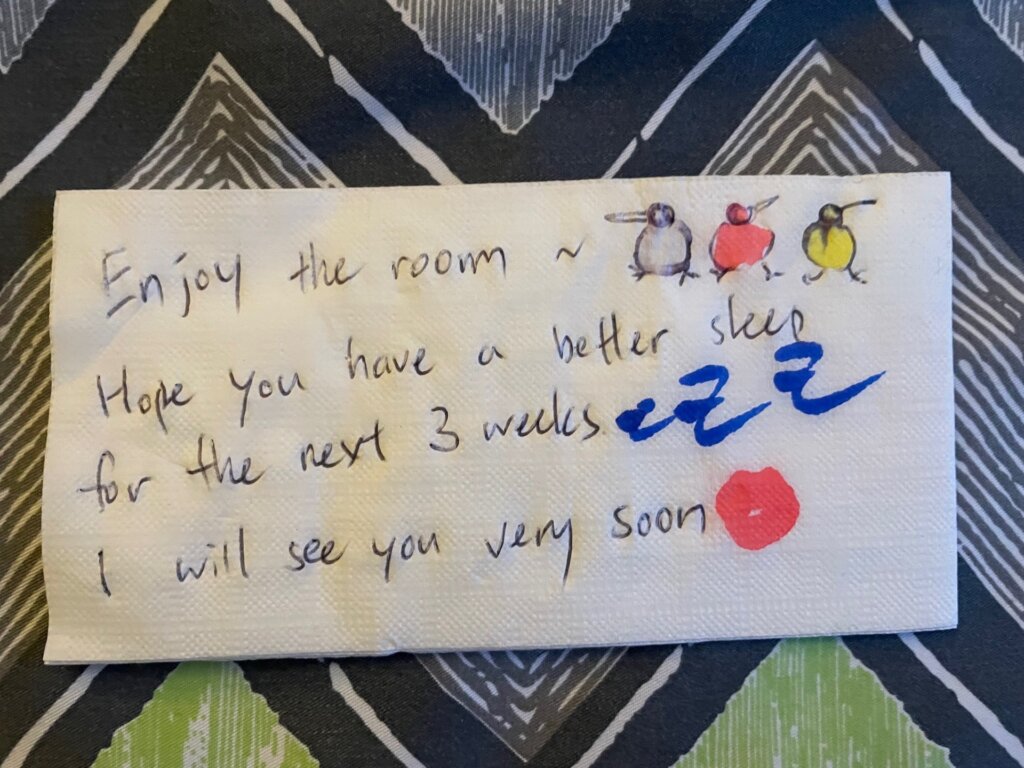 Enjoy the room ~
Hope you have a better sleep
for the next 3 weeks. zZZ
I will see you very soon